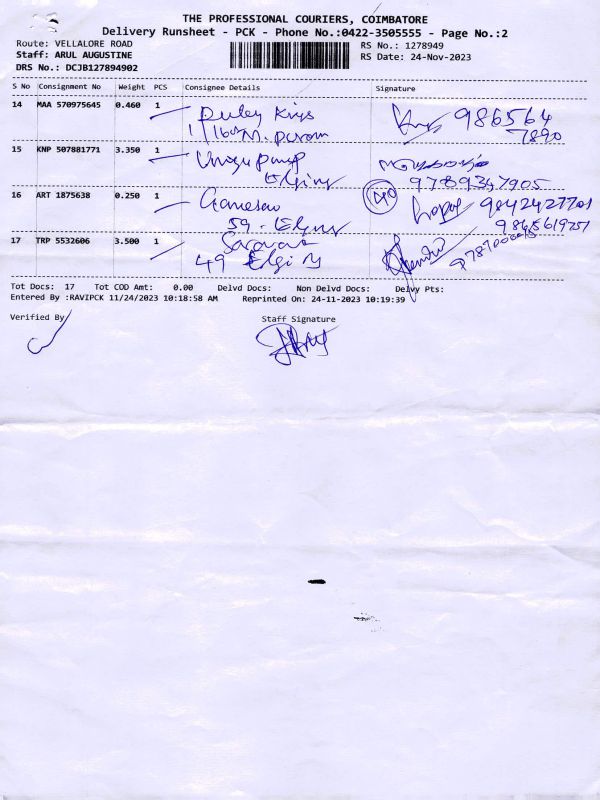 THE PROFESSIONAL COURIERS, COIMBATORE
Delivery Runsheet - PCK - Phone No.:0422-3505555 - Page No.:2
Route: VELLALORE ROAD
RS No.: 1278949
Staff: ARUL AUGUSTINE
RS Date: 24-Nov-2023
DRS No.: DCJB127894902
S No Consignment No Weight PCS Consignee Details Signature
14 MAA 570975645 0.460 1
986564
7890
15 KNP 507881771 3.350 1
9789347905
16 ART 1875638 0.250 1 Ganesan
59.
9842427701
17 TRP 5532606 3.500 1
49
Tot Docs: 17 Tot COD Amt: 0.00 Delvd Docs: Non Delvd Docs: Delvy Pts:
Entered By :RAVIPCK 11/24/2023 10:18:58 AM Reprinted On: 24-11-2023 10:19:39
Verified By
Staff Signature